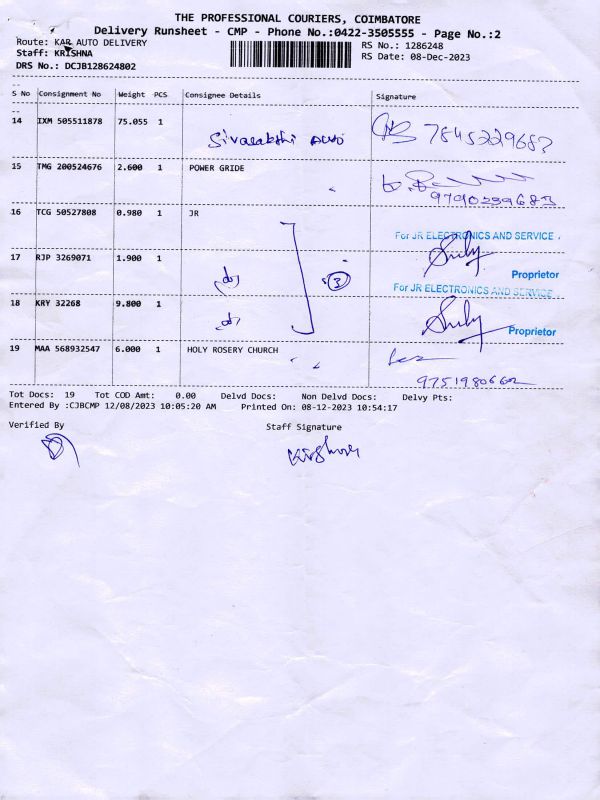 THE PROFESSIONAL COURIERS, COIMBATORE
Delivery Runsheet - CMP - Phone No.:0422-3505555 - Page No.:2
Route: KAR AUTO DELIVERY
RS No.: 1286248
Staff: KRISHNA
RS Date: 08-Dec-2023
DRS No.: DCJB128624802
S No Consignment No Weight PCS Consignee Details Signature
14 IXM 505511878 75.055 1
15 TMG 200524676 2.600 1 POWER GRIDE
16 TCG 50527808 0.980 1 JR
For JR ELECTRONICS AND SERVICE
17 RJP 3269071 1.900 1 3
Proprietor
For JR ELECTRONICS AND SERVICE
18 KRY 32268 9.800 1
Proprietor
19 MAA 568932547 6.000 1 HOLY ROSERY CHURCH
Tot Docs: 19 Tot COD Amt: 0.00 Delvd Docs: Non Delvd Docs: Delvy Pts:
Entered By :CJBCMP 12/08/2023 10:05:20 AM Printed On: 08-12-2023 10:54:17
Verified By Staff Signature